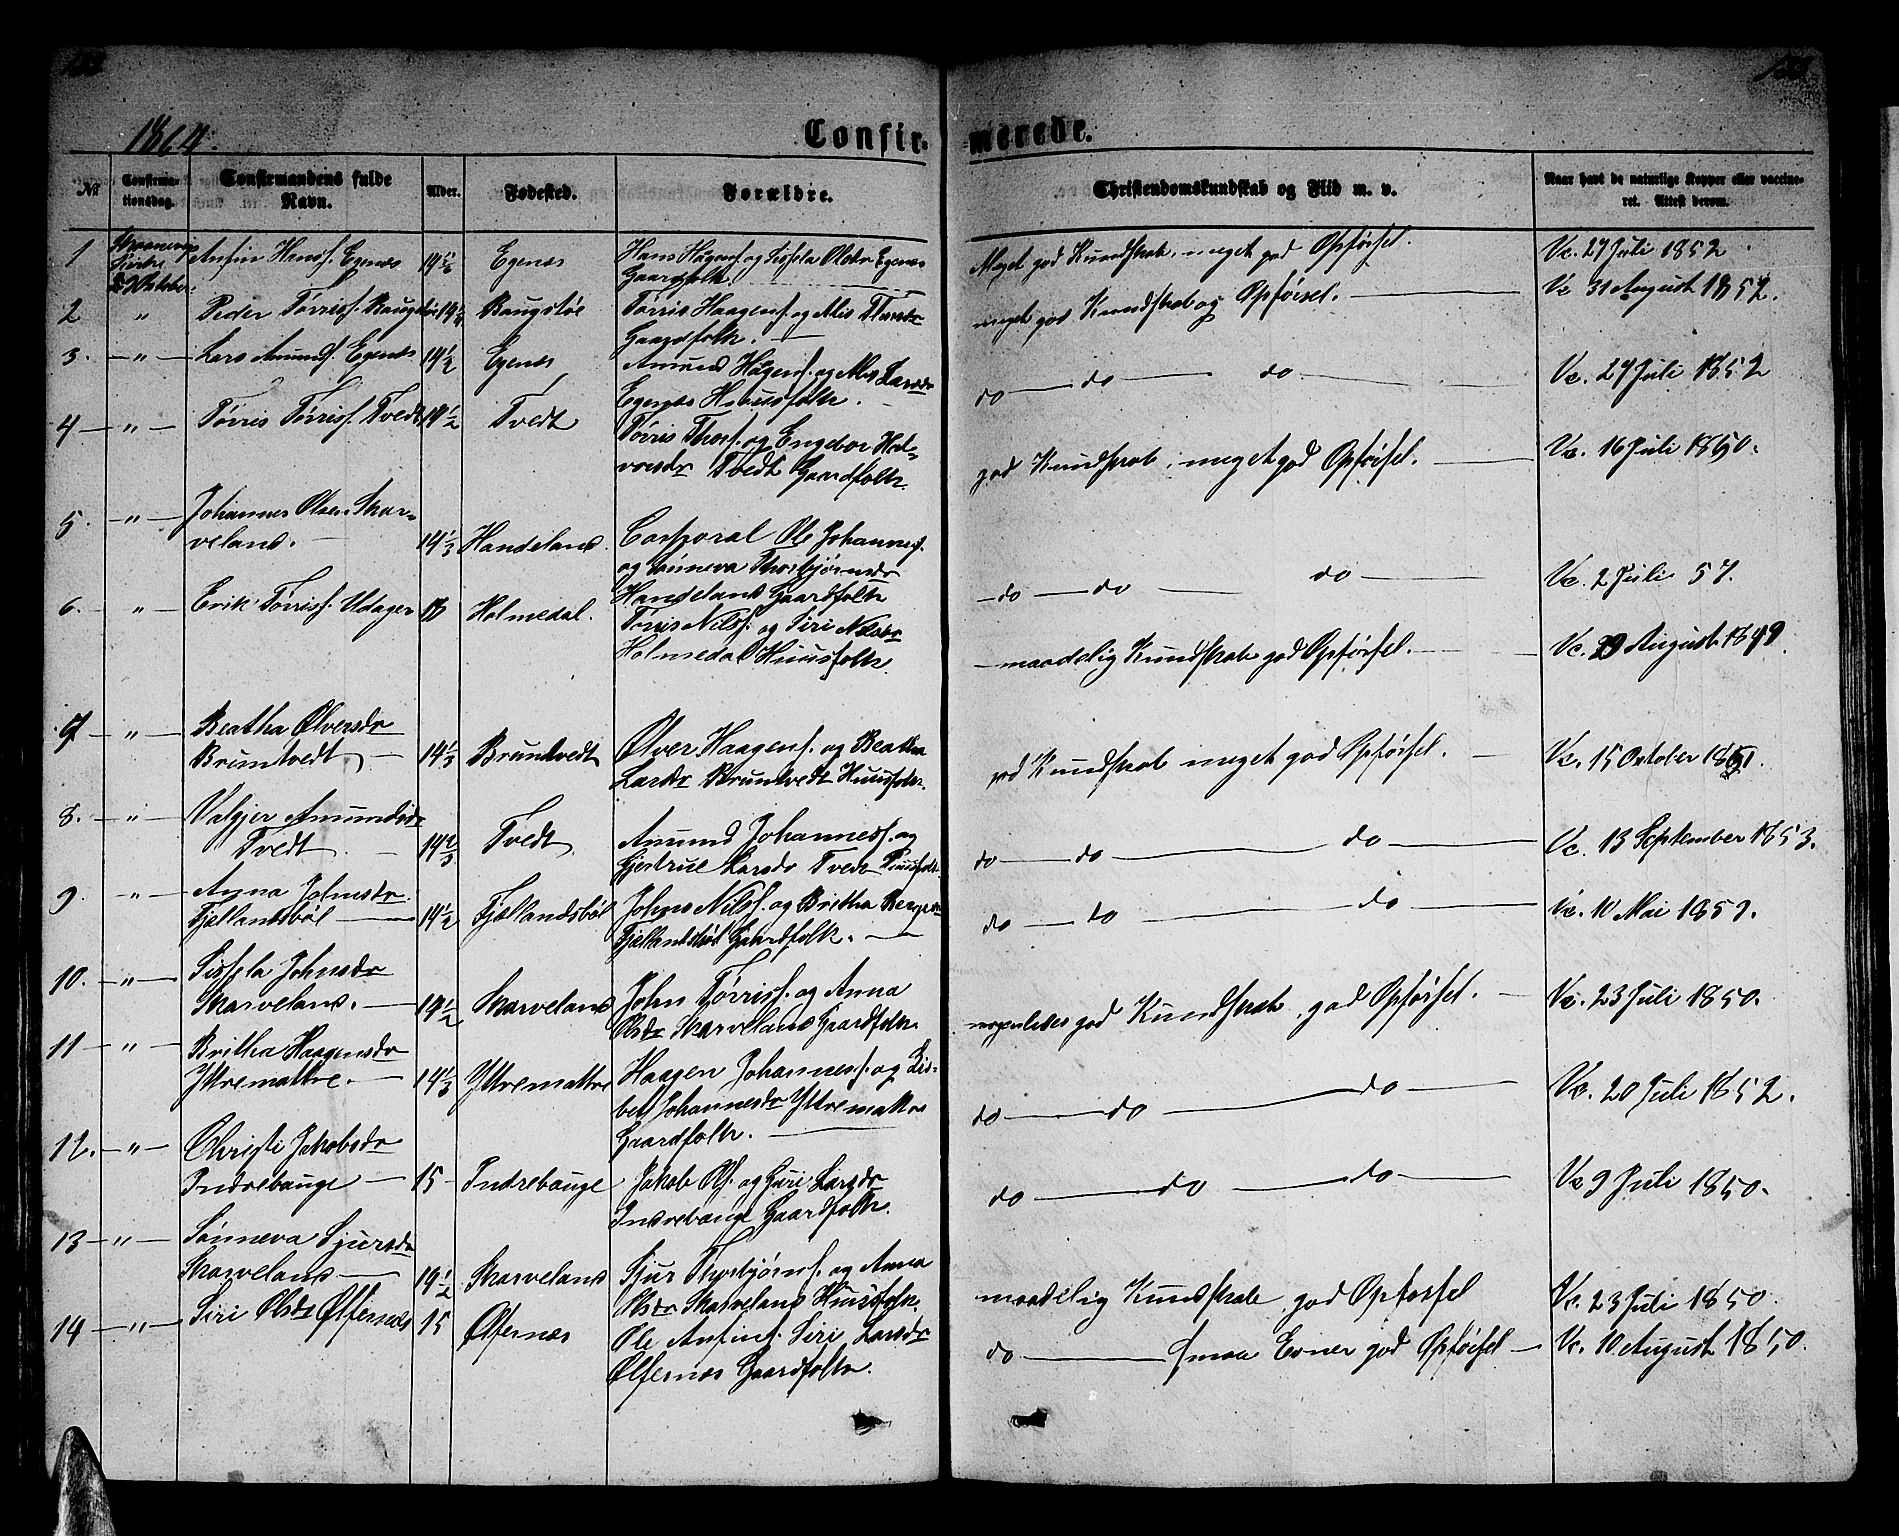 1864.
Confirmerede.
No
Confirmationsdag.
Confirmandens fulde Navn.
Alder.
Fødested.
Forældre.
Christendomskundskab og Flid m. v.
Naar havt de naturlige Kopper eller vaccineret. Attest derom.
1 Skaanevigs Kirke 2 Oktober: Anfin Hansf. Egenæs Egenæs Hans Hågensf. og Sissela Olsdr Egenæs
Gaardfolk. Meget god Kundskab, meget god Opførsel. Vc. 27 Juli 1852.
2 " Peder Tørrisf. Baugstøe 14 1/4 Baugstøe Tørris Haagensf. og Alis
Gaardfolk. meget god Kundskab og Opførsel. Vc 31 August 1852.
3. " Lars Amundsf. Egenæs 14 1/2 Egenæs Amund Hågensf. og Alis Larsdr
Egenæs Huusfolk. do do do Vc. 27 Juli 1852
4 " Tørris Tørrisf. Tvedt 14 1/2 Tvedt Tørris Thorsf. og Engebor Hal-
vorsdr Tvedt Gaardfolk. god Kundskab, meget god Opførsel. Vc. 16 Juli 1850.
5. " Johannes Olsen Skar-
veland. 14 1/3 Handeland. Corporal Ole Johannesf.
og Sønneva Thorbjørnsdr
Handeland Gaardfolk do do do Vc. 2 Juli 57.
6. " Erik Tørrisf. Udager Holmedal. Tørris Nilsf. og Siri Nilsdr
Holmedal Huusfolk. maadelig Kundskab god Opførsel. Vc. August 1849.
7 " Beatha Ølversdr
Bruntvedt 14 1/3 Bruntvedt Ølver Haagensf. og Beatha
Larsdr Bruntvedt Huusfolk. god Kundskab meget god Opførsel. Vc. 15 October 1851.
8. " Valgjer Amundsdr
Tvedt 14 2/3 Tvedt Amund Johannesf. og
Gjertrue Larsdr Tvedt Huusfolk. do do do Vc. 13 September 1853.
9. " Anna Johnsdr.
Fjellandsbøl 14 1/2 Fjællandsbøl Johns Nilsf. og Britha
Fjællandsbøl Gaardfolk. do do do Vc. 10 Mai 1851.
10. " Sissela Johnsdr
Skarveland. 14 1/2 Skarveland John Tørrisf. og Anna
Olsdr Skarveland Gaardfolk. nogenledes god Kundskab, god Opførsel. Vc. 23 Juli 1850.
11 " Britha Haagensdr
Yttremattre. 14 1/3 Yttremattre Haagen Johannesf. og Lis-
bet Johannesdr Yttremattre
Gaardfolk. do do do Vc. 20 Juli 1852.
12. " Christi Jakobsdr
Indrebauge 15 Indrebauge Jakob Olsf. og Guri Larsdr
Indrebauge Gaardfolk. do do do Vc 9 Juli 1850.
13 " Sønneva Sjursdr
Skarveland 14 1/2 Skarveland Sjur Thorbjørnsf. og Anna
Olsdr Skarveland Huusfolk. maadelig Kundskab, god Opførsel Vc. 23 Juli 1850.
14 " Siri Olsdr Ølfernæs 15 Ølfernæs Ole Anfinsf. Siri Larsdr
Ølfernæs Gaardfolk. do smaa Evner god Opførsel Vc. 10 August 1850.